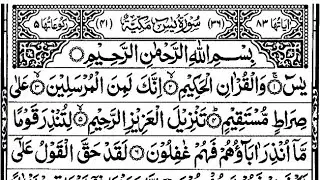 اٰیاتها ٨٣ (٣٦) سُوْرَةُ یٰسٓ مَکِّیَّةٌ (٤١) رکوعاتها ٥
بِسْمِ اللّٰهِ الرَّحْمٰنِ الرَّحِیْمِ
یٰسٓ ۝١ وَالْقُرْاٰنِ الْحَکِیْمِ ۝٢ اِنَّکَ لَمِنَ الْمُرْسَلِیْنَ ۝٣ عَلٰی
صِرَاطٍ مُّسْتَقِیْمٍ ۝٤ تَنْزِیْلَ الْعَزِیْزِ الرَّحِیْمِ ۝٥ لِتُنْذِرَ قَوْمًا
مَّاۤ اُنْذِرَ اٰبَآؤُهُمْ فَهُمْ غٰفِلُوْنَ ۝٦ لَقَدْ حَقَّ الْقَوْلُ عَلٰۤی